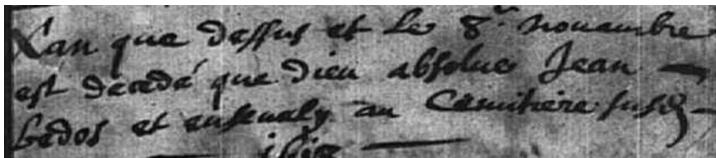 Lan que dessus et le 8.e nouembre
est decedé que dieu absolue Jean
bedos et enseuely au Cemitiere susd